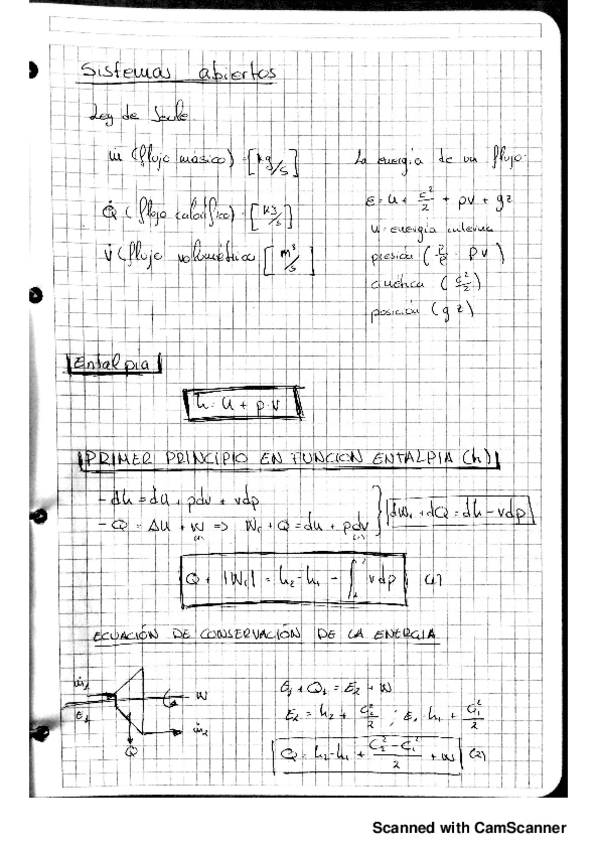 Sistemas abiertos
Ley de Joule
ṁ (flujo másico) = [kg/s]
Q̇ (flujo calorífico) = [kJ/s]
V̇ (flujo volumétrico) [m³/s]
La energía de un flujo:
e = u + c²/2 + pv + gz
u = energía interna
presión (p/ρ = pv)
cinética (c²/2)
posición (gz)
Entalpia
h = u + p·v
PRIMER PRINCIPIO EN FUNCION ENTALPIA (h)
- dh = du + pdv + vdp
- Q = Δu + W => Wf + Q = du + pdv
dWf + dQ = dh - vdp
Q + |Wf| = h2 - h1 - ∫ vdp (1)
ECUACIÓN DE CONSERVACIÓN DE LA ENERGIA
ṁ1
E1
W
ṁ2
Q
E1 + Q1 = E2 + W
E2 = h2 + C2²/2 ; E1 = h1 + C1²/2
Q = h2 - h1 + C2² - C1²/2 + W (2)
Scanned with CamScanner